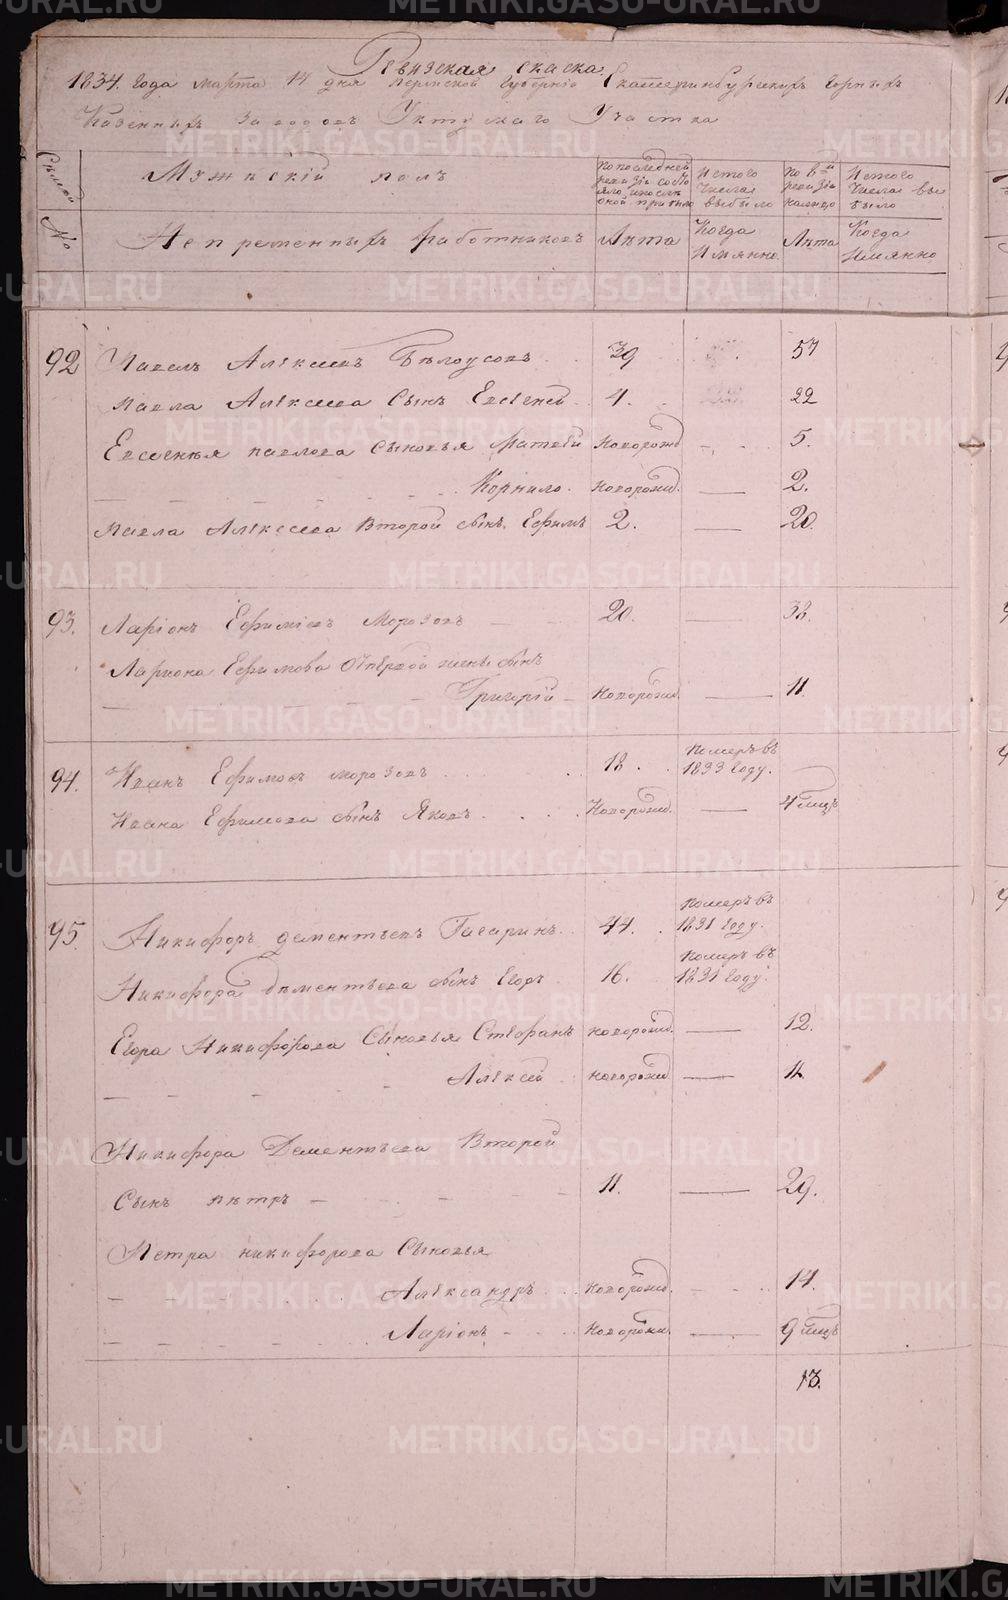 Ревизская сказка
1834. года марта 14 дня Пермской Губернiи Екатеринбургскихъ горныхъ
Казенныхъ заводовъ Уктускаго Участка
Семей №
Мужескiй полъ
По последней ревизiи состояло, и после оной прибыло
Из того числа выбыло
По 8й ревизiи налицо
Из того числа выбыло
Непременныхъ работниковъ
Лѣта
Когда Имянно
Лѣта
Когда Имянно
92 Павелъ Алексеевъ Бѣлоусовъ 39 57
Павла Алексеева Сынъ Евсеней 4. 22
Евсенья павлова Сыновья Матвей Новорожд 5.
Корнило. Новорожд. — 2.
Павла Алексеева Второй сынъ Ефимъ 2. — 20.
93. Ларiонъ Ефимовъ Морозовъ 20. — 38.
Лариона Ефимова От первой жены сынъ
Григорiй Новорожд. — 11.
94. Иванъ Ефимовъ морозовъ 18. Померъ въ 1833 году. —
Ивана Ефимова сынъ Яковъ Новорожд. — 4 мцъ
95. Никифоръ дементьевъ Гагаринъ 44. Померъ въ 1831 году.
Никифора дементьева сынъ Егоръ 16. Померъ въ 1831 году.
Егора Никифорова Сыновья Стефанъ новорожд. — 12.
Алексей новорожд — 4.
Никифора Дементьева Второй
Сынъ петръ 11. — 29.
Петра никифорова Сыновья
Александръ Новорожд. 14.
Ларiонъ Новорожд. — 9 мцъ
13.
METRIKI.GASO-URAL.RU